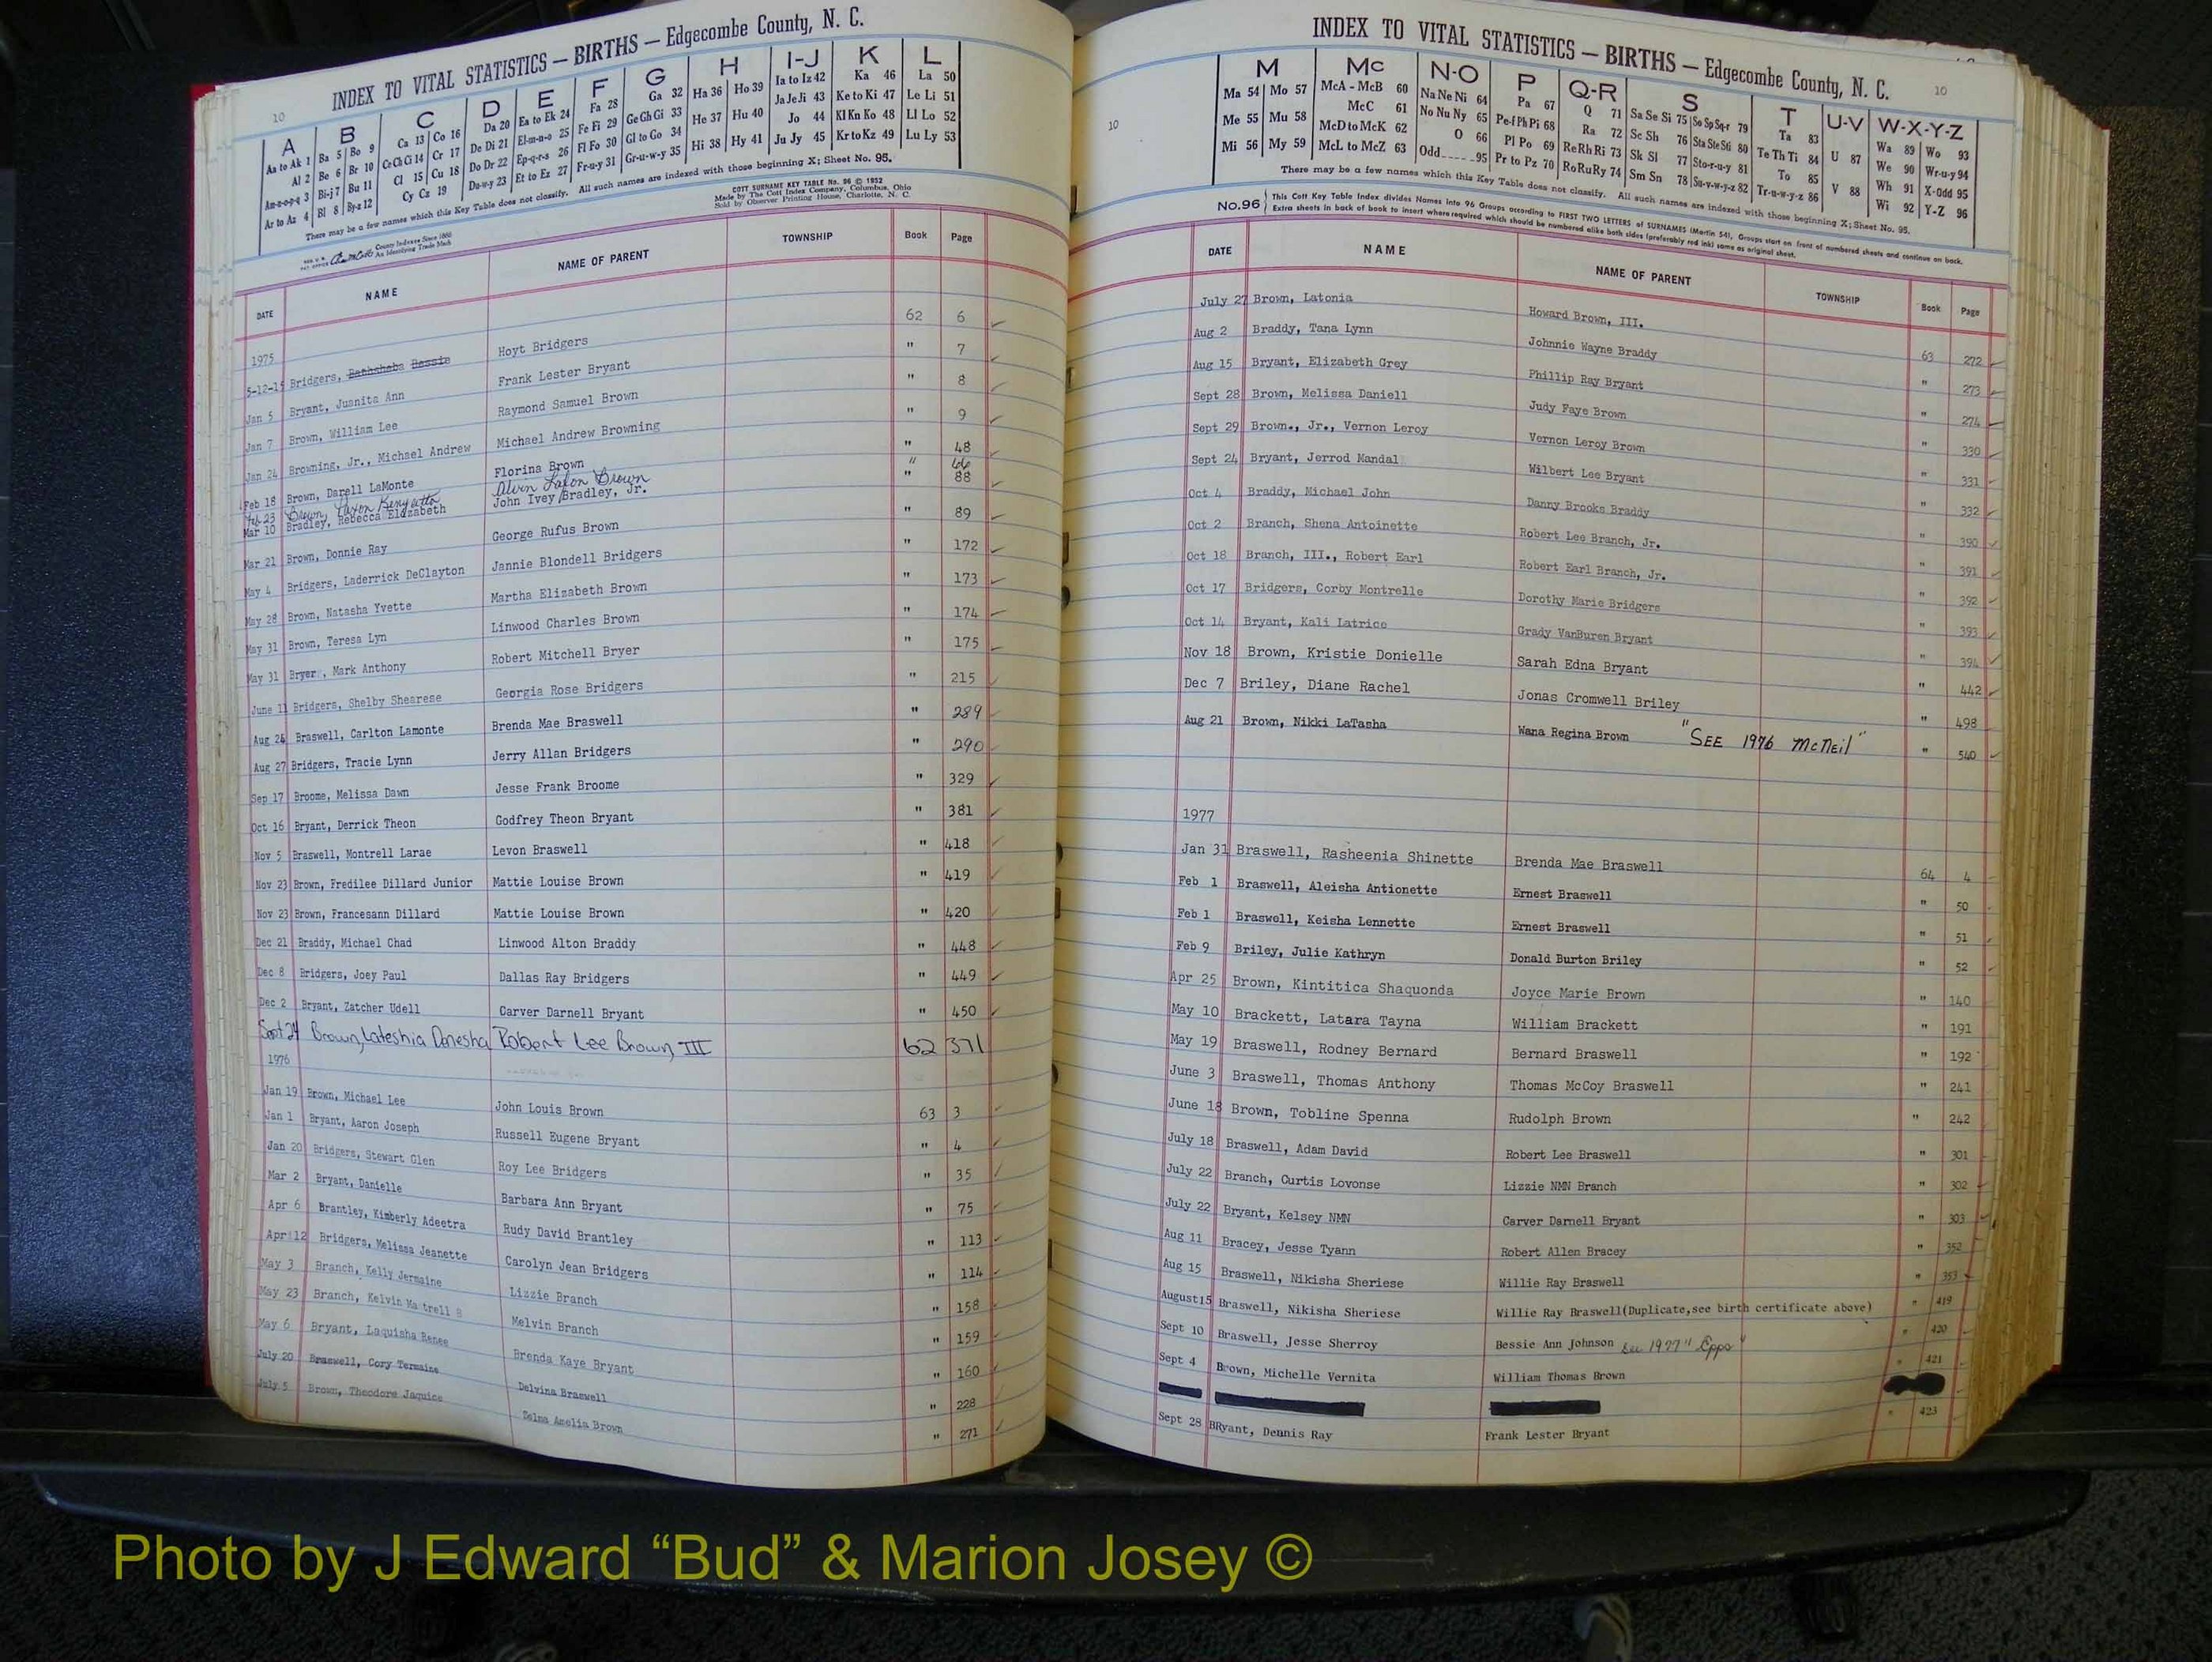 INDEX TO VITAL STATISTICS — BIRTHS — Edgecombe County, N. C.
10
A B C D E F G H I-J K L
Aa to Ak 1 Ba 5 Bo 9 Ca 13 Co 16 Da 20 Ea to Ek 24 Fa 28 Ga 32 Ha 36 Ho 39 Ia to Iz 42 Ka 46 La 50
Al 2 Be 6 Br 10 Ce Ch Ci 14 Cr 17 De Di 21 El-m-n-o 25 Fe Fi 29 Ge Gh Gi 33 He 37 Hu 40 Ja Je Ji 43 Ke to Ki 47 Le Li 51
Am-n-o-p-q 3 Bi-j 7 Bu 11 Cl 15 Cu 18 Do Dr 22 Ep-q-r-s 26 Fl Fo 30 Gl to Go 34 Hi 38 Hy 41 Jo 44 Kl Kn Ko 48 Ll Lo 52
Ar to Az 4 Bl 8 By-z 12 Cy Cz 19 Du-w-y 23 Et to Ez 27 Fr-u-y 31 Gr-u-w-y 35 Ju Jy 45 Kr to Kz 49 Lu Ly 53
There may be a few names which this Key Table does not classify. All such names are indexed with those beginning X; Sheet No. 95.
COTT SURNAME KEY TABLE No. 96 © 1952
Made by The Cott Index Company, Columbus, Ohio
Sold by Observer Printing House, Charlotte, N. C.
County Indexes Since 1888
An Identifying Trade Mark
DATE NAME NAME OF PARENT TOWNSHIP Book Page
1975
5-12-15 Bridgers, Bathsheba Bessie Hoyt Bridgers 62 6
Jan 5 Bryant, Juanita Ann Frank Lester Bryant " 7
Jan 7 Brown, William Lee Raymond Samuel Brown " 8
Jan 24 Browning, Jr., Michael Andrew Michael Andrew Browning " 9
Feb 18 Brown, Darell LaMonte Florina Brown " 48
Feb 23 Brown, Kenyatta Alvin Brown " 66
Mar 10 Bradley, Rebecca Elizabeth John Ivey Bradley, Jr. " 88
Mar 21 Brown, Donnie Ray George Rufus Brown " 89
May 4 Bridgers, Laderrick DeClayton Jannie Blondell Bridgers " 172
May 28 Brown, Natasha Yvette Martha Elizabeth Brown " 173
May 31 Brown, Teresa Lyn Linwood Charles Brown " 174
May 31 Bryer, Mark Anthony Robert Mitchell Bryer " 175
June 11 Bridgers, Shelby Shearese Georgia Rose Bridgers " 215
Aug 24 Braswell, Carlton Lamonte Brenda Mae Braswell " 289
Aug 27 Bridgers, Tracie Lynn Jerry Allan Bridgers " 290
Sep 17 Broome, Melissa Dawn Jesse Frank Broome " 329
Oct 16 Bryant, Derrick Theon Godfrey Theon Bryant " 381
Nov 5 Braswell, Montrell Larae Levon Braswell " 418
Nov 23 Brown, Fredilee Dillard Junior Mattie Louise Brown " 419
Nov 23 Brown, Francesann Dillard Mattie Louise Brown " 420
Dec 21 Braddy, Michael Chad Linwood Alton Braddy " 448
Dec 8 Bridgers, Joey Paul Dallas Ray Bridgers " 449
Dec 2 Bryant, Zatcher Udell Carver Darnell Bryant " 450
Sept 24 Brown, Lateshia Donesha Robert Lee Brown III 62 371
1976
Jan 19 Brown, Michael Lee John Louis Brown 63 3
Jan 1 Bryant, Aaron Joseph Russell Eugene Bryant " 4
Jan 20 Bridgers, Stewart Glen Roy Lee Bridgers " 35
Mar 2 Bryant, Danielle Barbara Ann Bryant " 75
Apr 6 Brantley, Kimberly Adeetra Rudy David Brantley " 113
Apr 12 Bridgers, Melissa Jeanette Carolyn Jean Bridgers " 114
May 3 Branch, Kelly Jermaine Lizzie Branch " 158
May 23 Branch, Kelvin Ma trell Melvin Branch " 159
May 6 Bryant, Laquisha Renee Brenda Kaye Bryant " 160
July 20 Braswell, Cory Termaine Delvina Braswell " 228
July 5 Brown, Theodore Jaquice Zelma Amelia Brown " 271
INDEX TO VITAL STATISTICS — BIRTHS — Edgecombe County, N. C.
10 10
M Mc N-O P Q-R S T U-V W-X-Y-Z
Ma 54 Mo 57 McA - McB 60 Na Ne Ni 64 Pa 67 Q 71 Sa Se Si 75 So Sp Sq-r 79 Ta 83 Wa 89 Wo 93
Me 55 Mu 58 McC 61 No Nu Ny 65 Pe-f Ph Pi 68 Ra 72 Sc Sh 76 Sta Ste Sti 80 Te Th Ti 84 U 87 We 90 Wr-u-y 94
Mi 56 My 59 McD to McK 62 O 66 Pl Po 69 Re Rh Ri 73 Sk Sl 77 Sto-r-u-y 81 To 85 V 88 Wh 91 X-Odd 95
McL to McZ 63 Odd 95 Pr to Pz 70 Ro Ru Ry 74 Sm Sn 78 Su-v-w-y-z 82 Tr-u-w-y-z 86 Wi 92 Y-Z 96
There may be a few names which this Key Table does not classify. All such names are indexed with those beginning X; Sheet No. 95.
No.96 This Cott Key Table Index divides Names into 96 Groups according to FIRST TWO LETTERS of SURNAMES (Martin 54), Groups start on front of numbered sheets and continue on back.
Extra sheets in back of book to insert where required which should be numbered alike both sides (preferably red ink) same as original sheet.
DATE NAME NAME OF PARENT TOWNSHIP Book Page
July 27 Brown, Latonia Howard Brown, III. 63 272
Aug 2 Braddy, Tana Lynn Johnnie Wayne Braddy " 273
Aug 15 Bryant, Elizabeth Grey Phillip Ray Bryant " 274
Sept 28 Brown, Melissa Daniell Judy Faye Brown " 330
Sept 29 Brown., Jr., Vernon Leroy Vernon Leroy Brown " 331
Sept 24 Bryant, Jerrod Mandal Wilbert Lee Bryant " 332
Oct 4 Braddy, Michael John Danny Brooks Braddy " 390
Oct 2 Branch, Shena Antoinette Robert Lee Branch, Jr. " 391
Oct 18 Branch, III., Robert Earl Robert Earl Branch, Jr. " 392
Oct 17 Bridgers, Corby Montrelle Dorothy Marie Bridgers " 393
Oct 14 Bryant, Kali Latrice Grady VanBuren Bryant " 394
Nov 18 Brown, Kristie Donielle Sarah Edna Bryant " 442
Dec 7 Briley, Diane Rachel Jonas Cromwell Briley " 498
Aug 21 Brown, Nikki LaTasha Wana Regina Brown "SEE 1976 McNeil" " 540
1977
Jan 31 Braswell, Rasheenia Shinette Brenda Mae Braswell 64 4
Feb 1 Braswell, Aleisha Antionette Ernest Braswell " 50
Feb 1 Braswell, Keisha Lennette Ernest Braswell " 51
Feb 9 Briley, Julie Kathryn Donald Burton Briley " 52
Apr 25 Brown, Kintitica Shaquonda Joyce Marie Brown " 140
May 10 Brackett, Latara Tayna William Brackett " 191
May 19 Braswell, Rodney Bernard Bernard Braswell " 192
June 3 Braswell, Thomas Anthony Thomas McCoy Braswell " 241
June 18 Brown, Tobline Spenna Rudolph Brown " 242
July 18 Braswell, Adam David Robert Lee Braswell " 301
July 22 Branch, Curtis Lovonse Lizzie NMN Branch " 302
July 22 Bryant, Kelsey NMN Carver Darnell Bryant " 303
Aug 11 Bracey, Jesse Tyann Robert Allen Bracey " 352
Aug 15 Braswell, Nikisha Sheriese Willie Ray Braswell " 353
August15 Braswell, Nikisha Sheriese Willie Ray Braswell(Duplicate,see birth certificate above) " 419
Sept 10 Braswell, Jesse Sherroy Bessie Ann Johnson see 1977 "Epps" " 420
Sept 4 Brown, Michelle Vernita William Thomas Brown " 421
Sept 28 BRyant, Dennis Ray Frank Lester Bryant " 423
Photo by J Edward “Bud” & Marion Josey ©